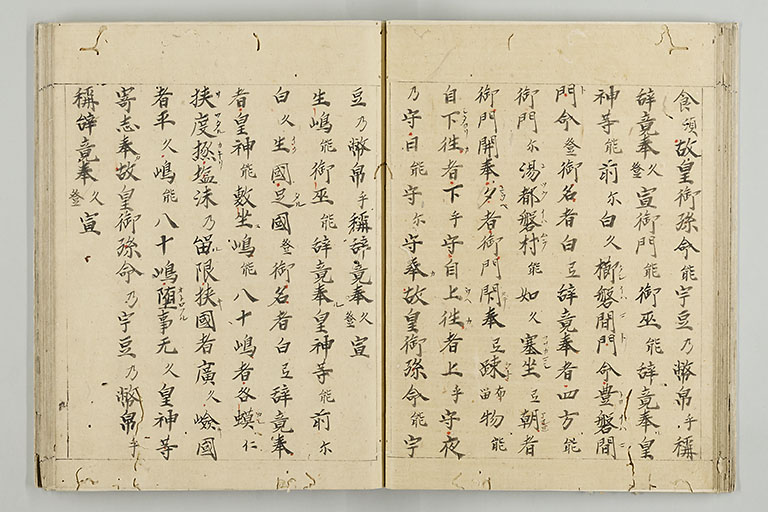 食須故皇御孫命能宇豆乃幣帛乎稱
辞竟奉久登宣御門能御巫能辞竟奉皇
神等能前尓白久櫛磐間門命豊磐間
門命登御名者白豆辞竟奉者四方能
御門尓湯都磐村能如久塞坐豆朝者
御門開奉夕者御門閇奉豆疎布留物能
自下往者下乎守自上往者上乎守夜
乃守日能守尓守奉故皇御孫命能宇
豆乃幣帛乎稱辞竟奉久登宣
生嶋能御巫能辞竟奉皇神等能前尓
白久生國足國登御名者白豆辞竟奉
者皇神能敷坐嶋能八十嶋者谷蟆仁
狭度極塩沫乃留限狭國者廣久嶮國
者平久嶋能八十嶋堕事无久皇神等
寄志奉故皇御孫命乃宇豆乃幣帛乎
稱辞竟奉久登宣